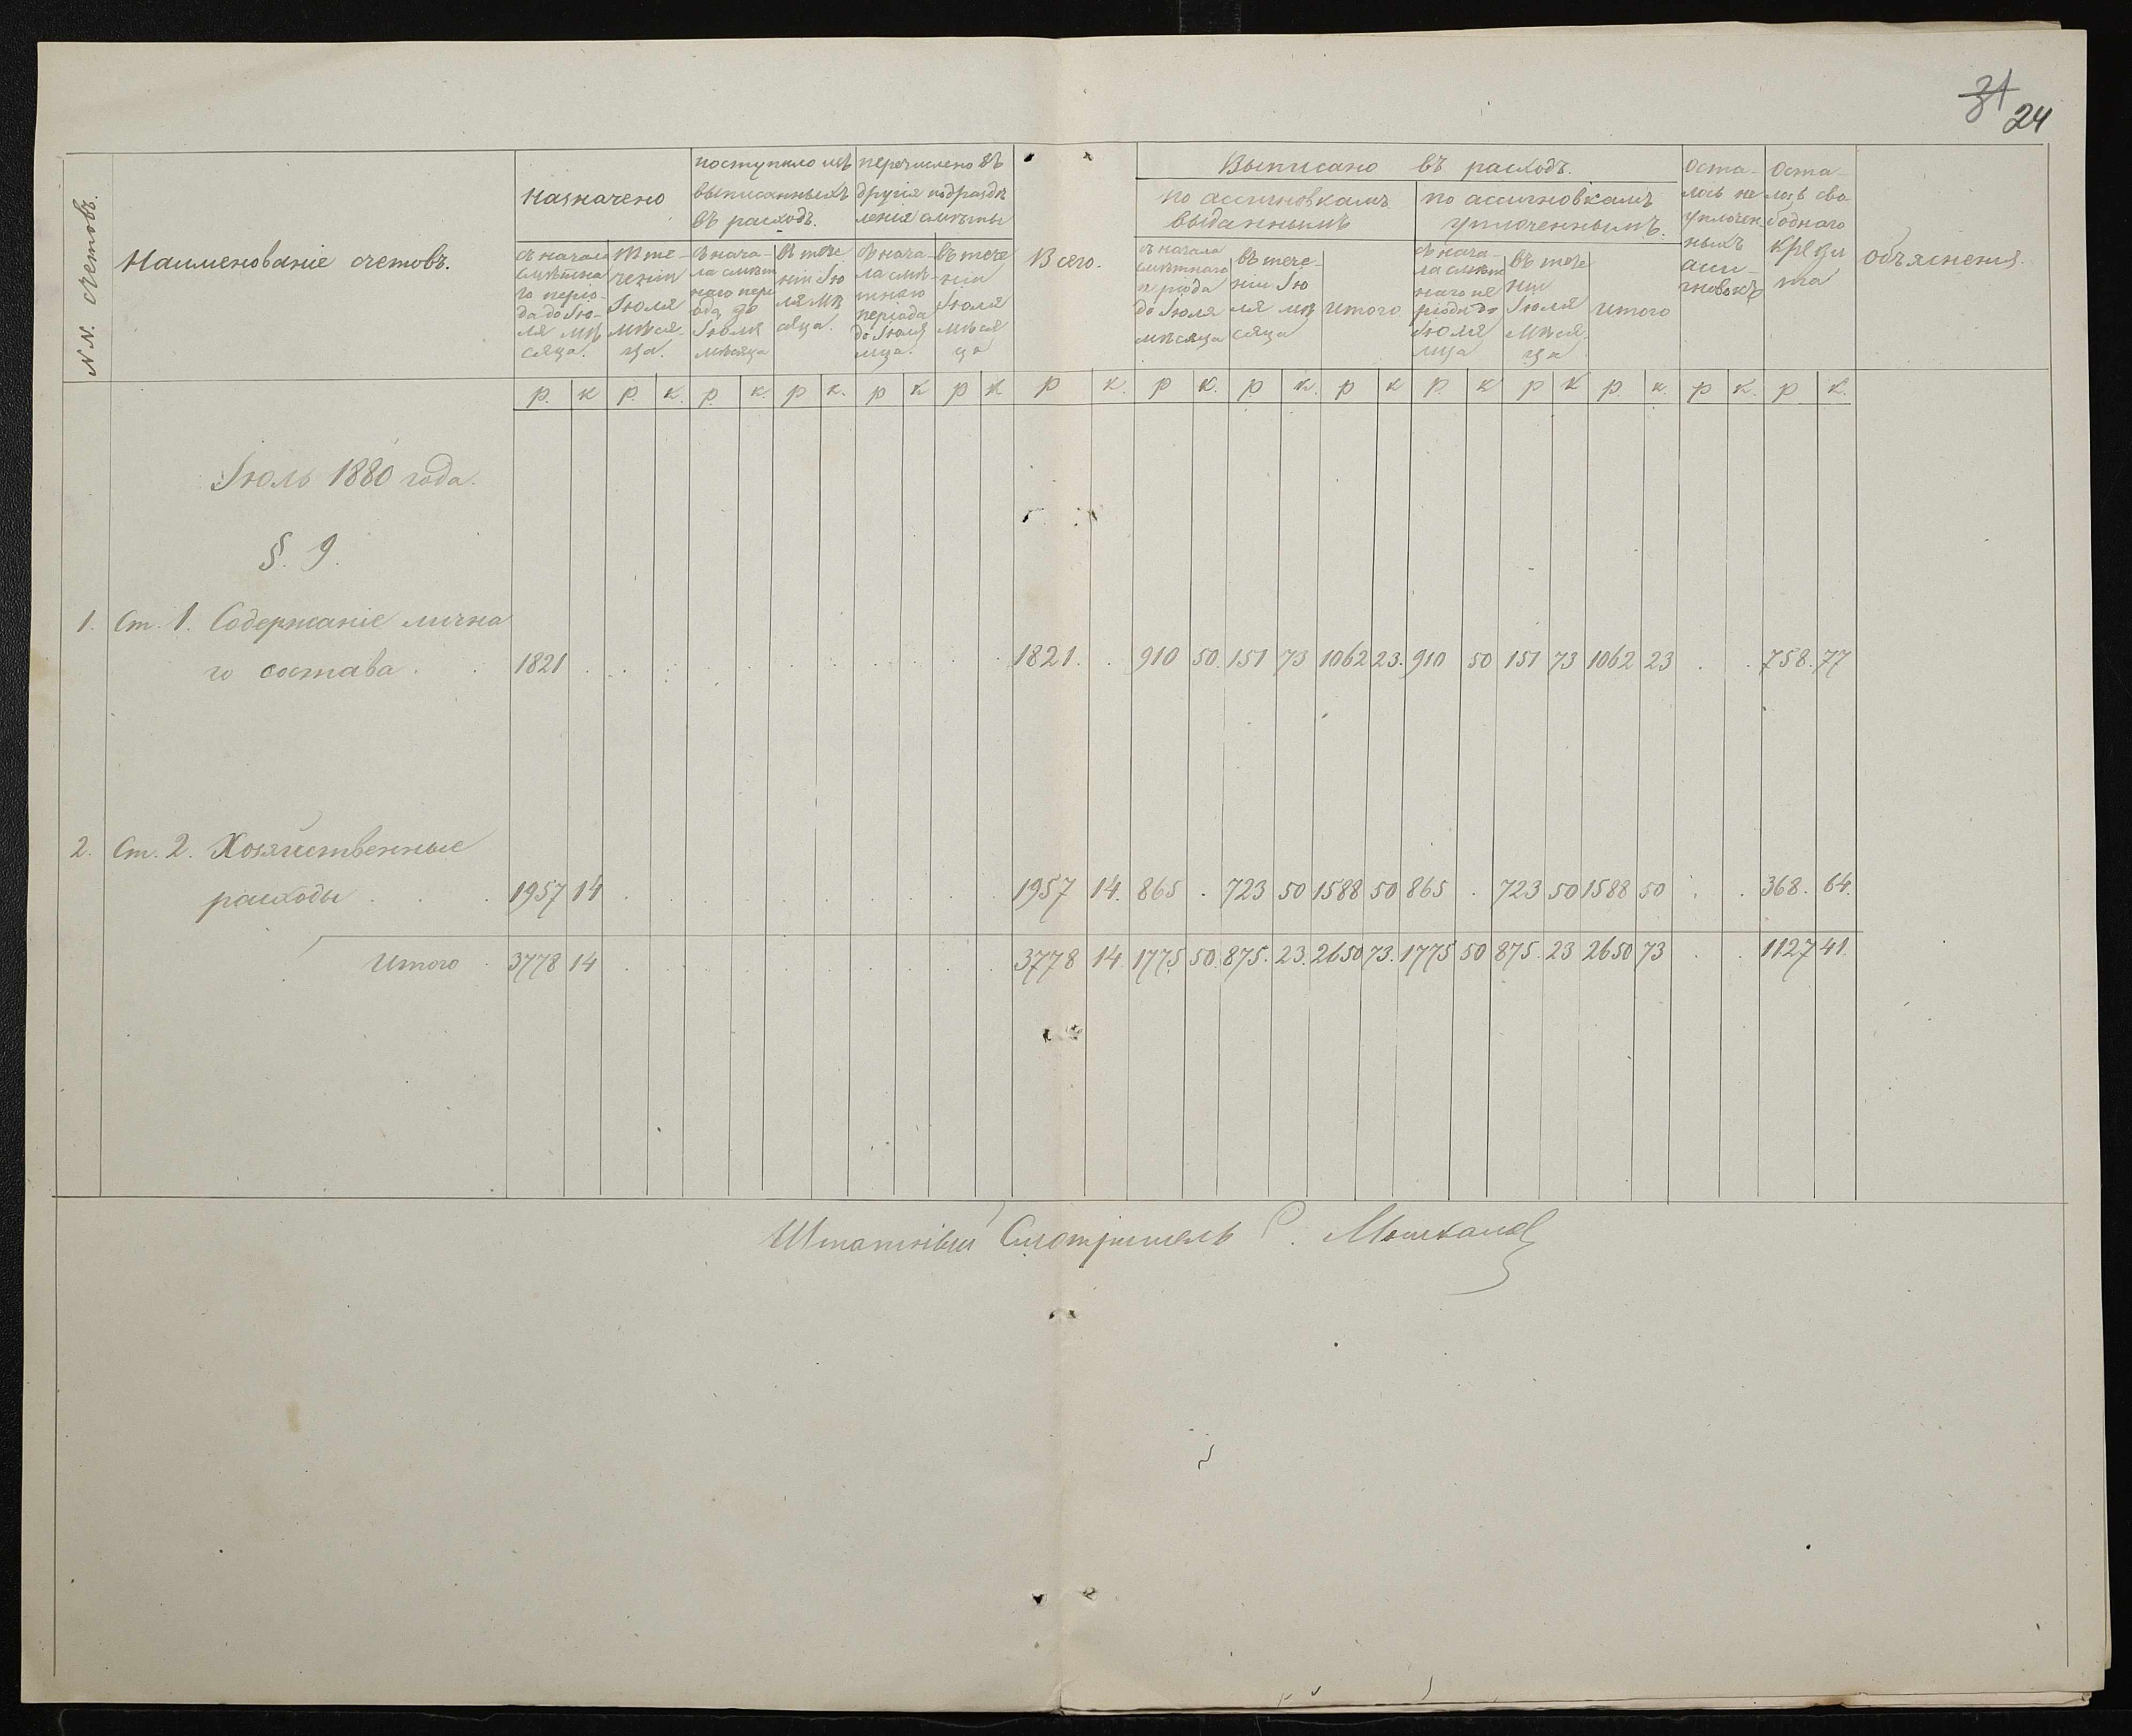 31
24
NN. счетовъ.
Наименованіе счетовъ.
Назначено
съ начала смѣтна
го періо-
да до Ію-
ля мѣ
сяца.
Въ те-
ченіи
Іюля
мѣся-
ца.
поступило изъ
выписанныхъ
въ расходъ.
Съ нача-
ла смѣт
наго пері
ода до
Іюля
мѣсяца
Въ тече
ніи Ію
ля мѣ
сяца.
перечислено въ
другія подраздѣ
ленія смѣты
Съ нача-
ла смѣ-
тнаго
періода
до Іюля
мца.
въ тече
ніи
Іюля
мѣся
ца
Всего.
Выписано въ расходъ.
по ассигновкамъ
выданнымъ
съ начала
смѣтнаго
періода
до Іюля
мѣсяца
въ тече-
ніи Ію
ля мѣ
сяца
итого
по ассигновкамъ
уплоченнымъ.
съ нача-
ла смѣт
наго пе
ріода до
Іюля
мца
въ тече
ніи
Іюля
мѣся-
ца
итого
Оста-
лось не
уплочен
ныхъ
асси-
гновокъ
Оста-
лось сво
боднаго
креди
та
объясненія.
р. к р. к. р. к. р к. р к р к р к. р к. р к. р к р. к р к р. к. р к. р к.
Іюль 1880 года.
§. 9.
1. Ст. 1. Содержаніе лична
го состава . . 1821 . . . 1821. . 910 50. 151 73 1062 23. 910 50 151 73 1062 23 . . 758. 77
2. Ст. 2. Хозяйственные
расходы . . . 1957 14 . . . 1957 14. 865 . 723 50 1588 50 865 . 723 50 1588 50 . . 368. 64.
Итого . 3778 14 . . . 3778 14 1775 50. 875. 23. 2650 73. 1775 50 875. 23 2650 73 . . 1127 41.
Штатный Смотритель